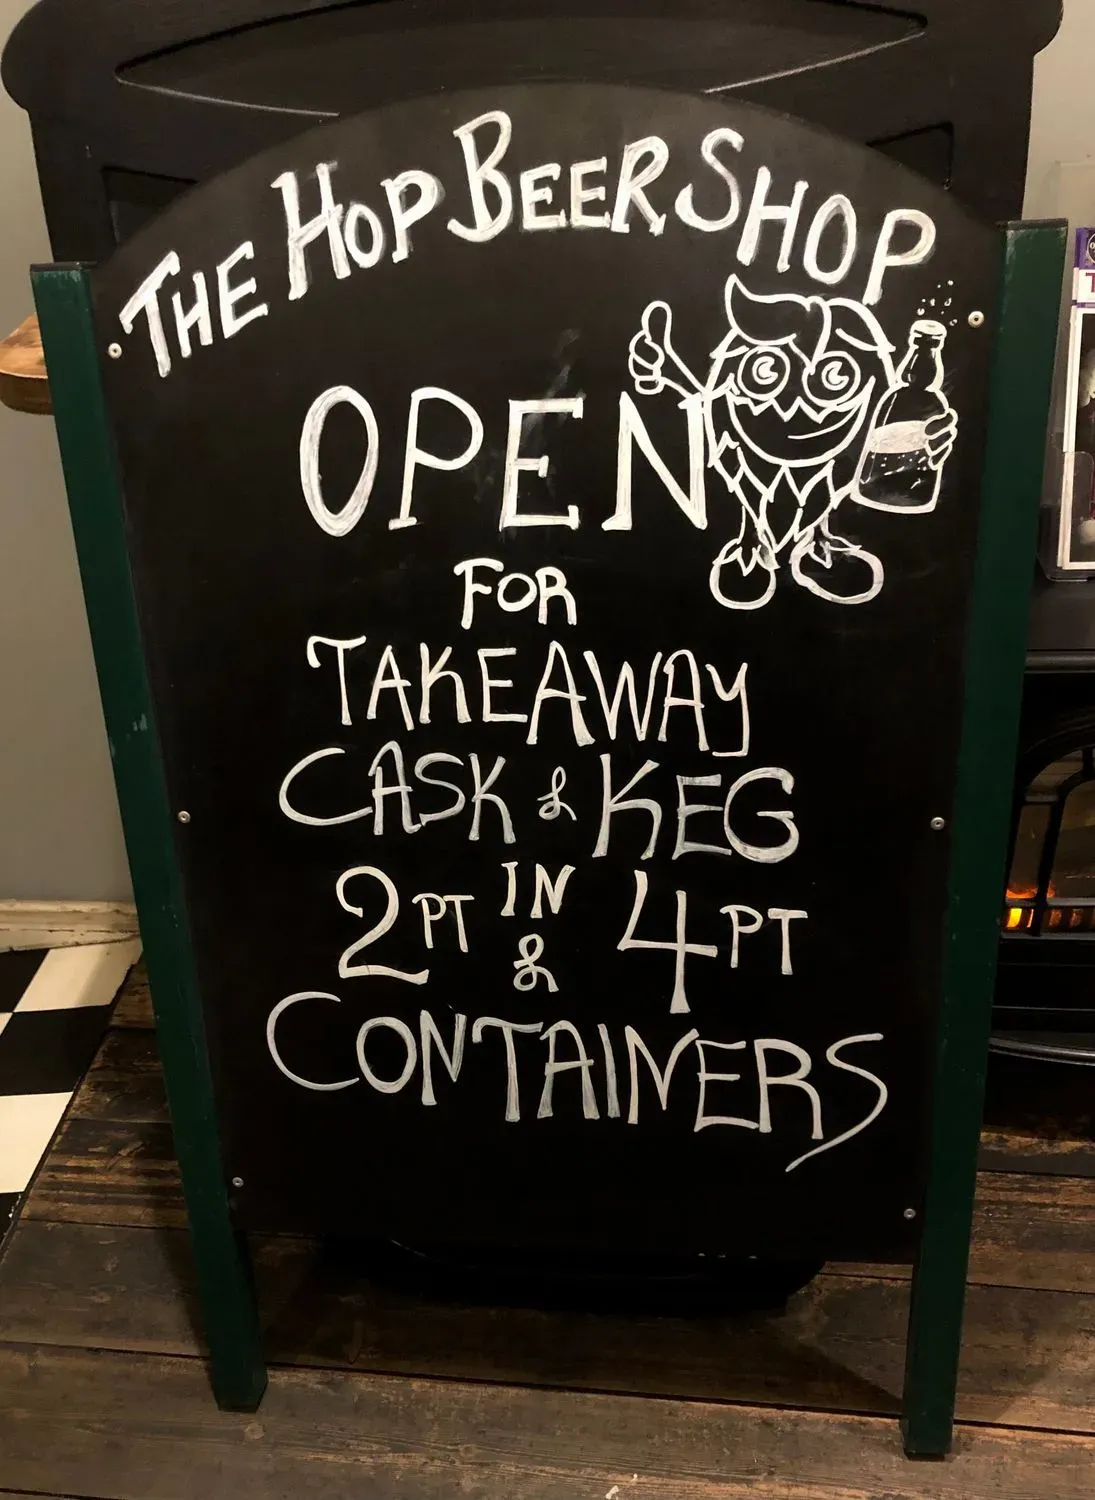 THE HOP BEER SHOP
OPEN
FOR
TAKEAWAY
CASK & KEG
IN
2PT & 4PT
CONTAINERS